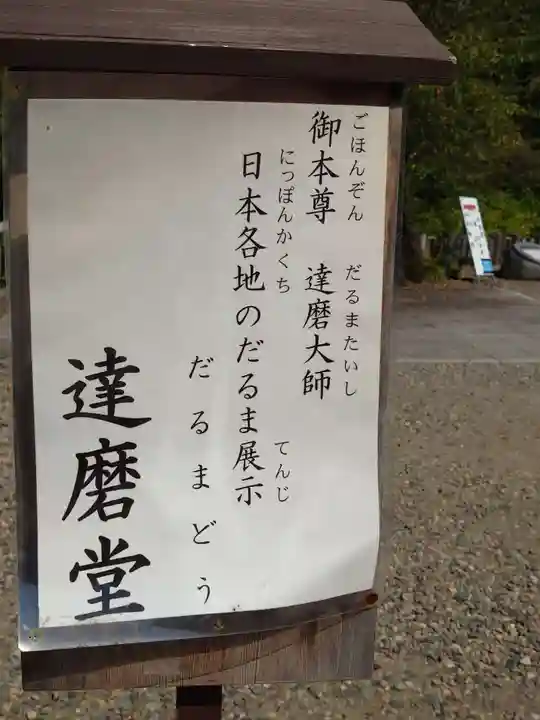 ごほんぞん だるまたいし
御本尊 達磨大師
にっぽんかくち てんじ
日本各地のだるま展示
だるまどう
達磨堂